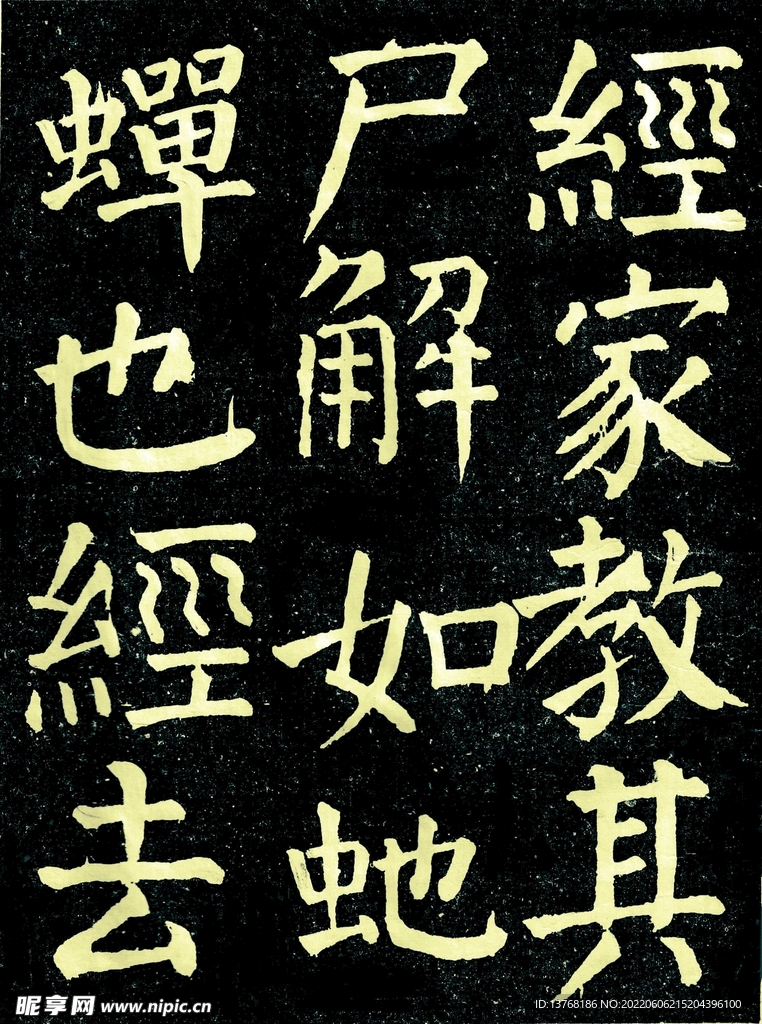 經家教其
尸解如虵
蟬也經去
昵享网 www.nipic.cn
ID:13768186 NO:20220606215204396100